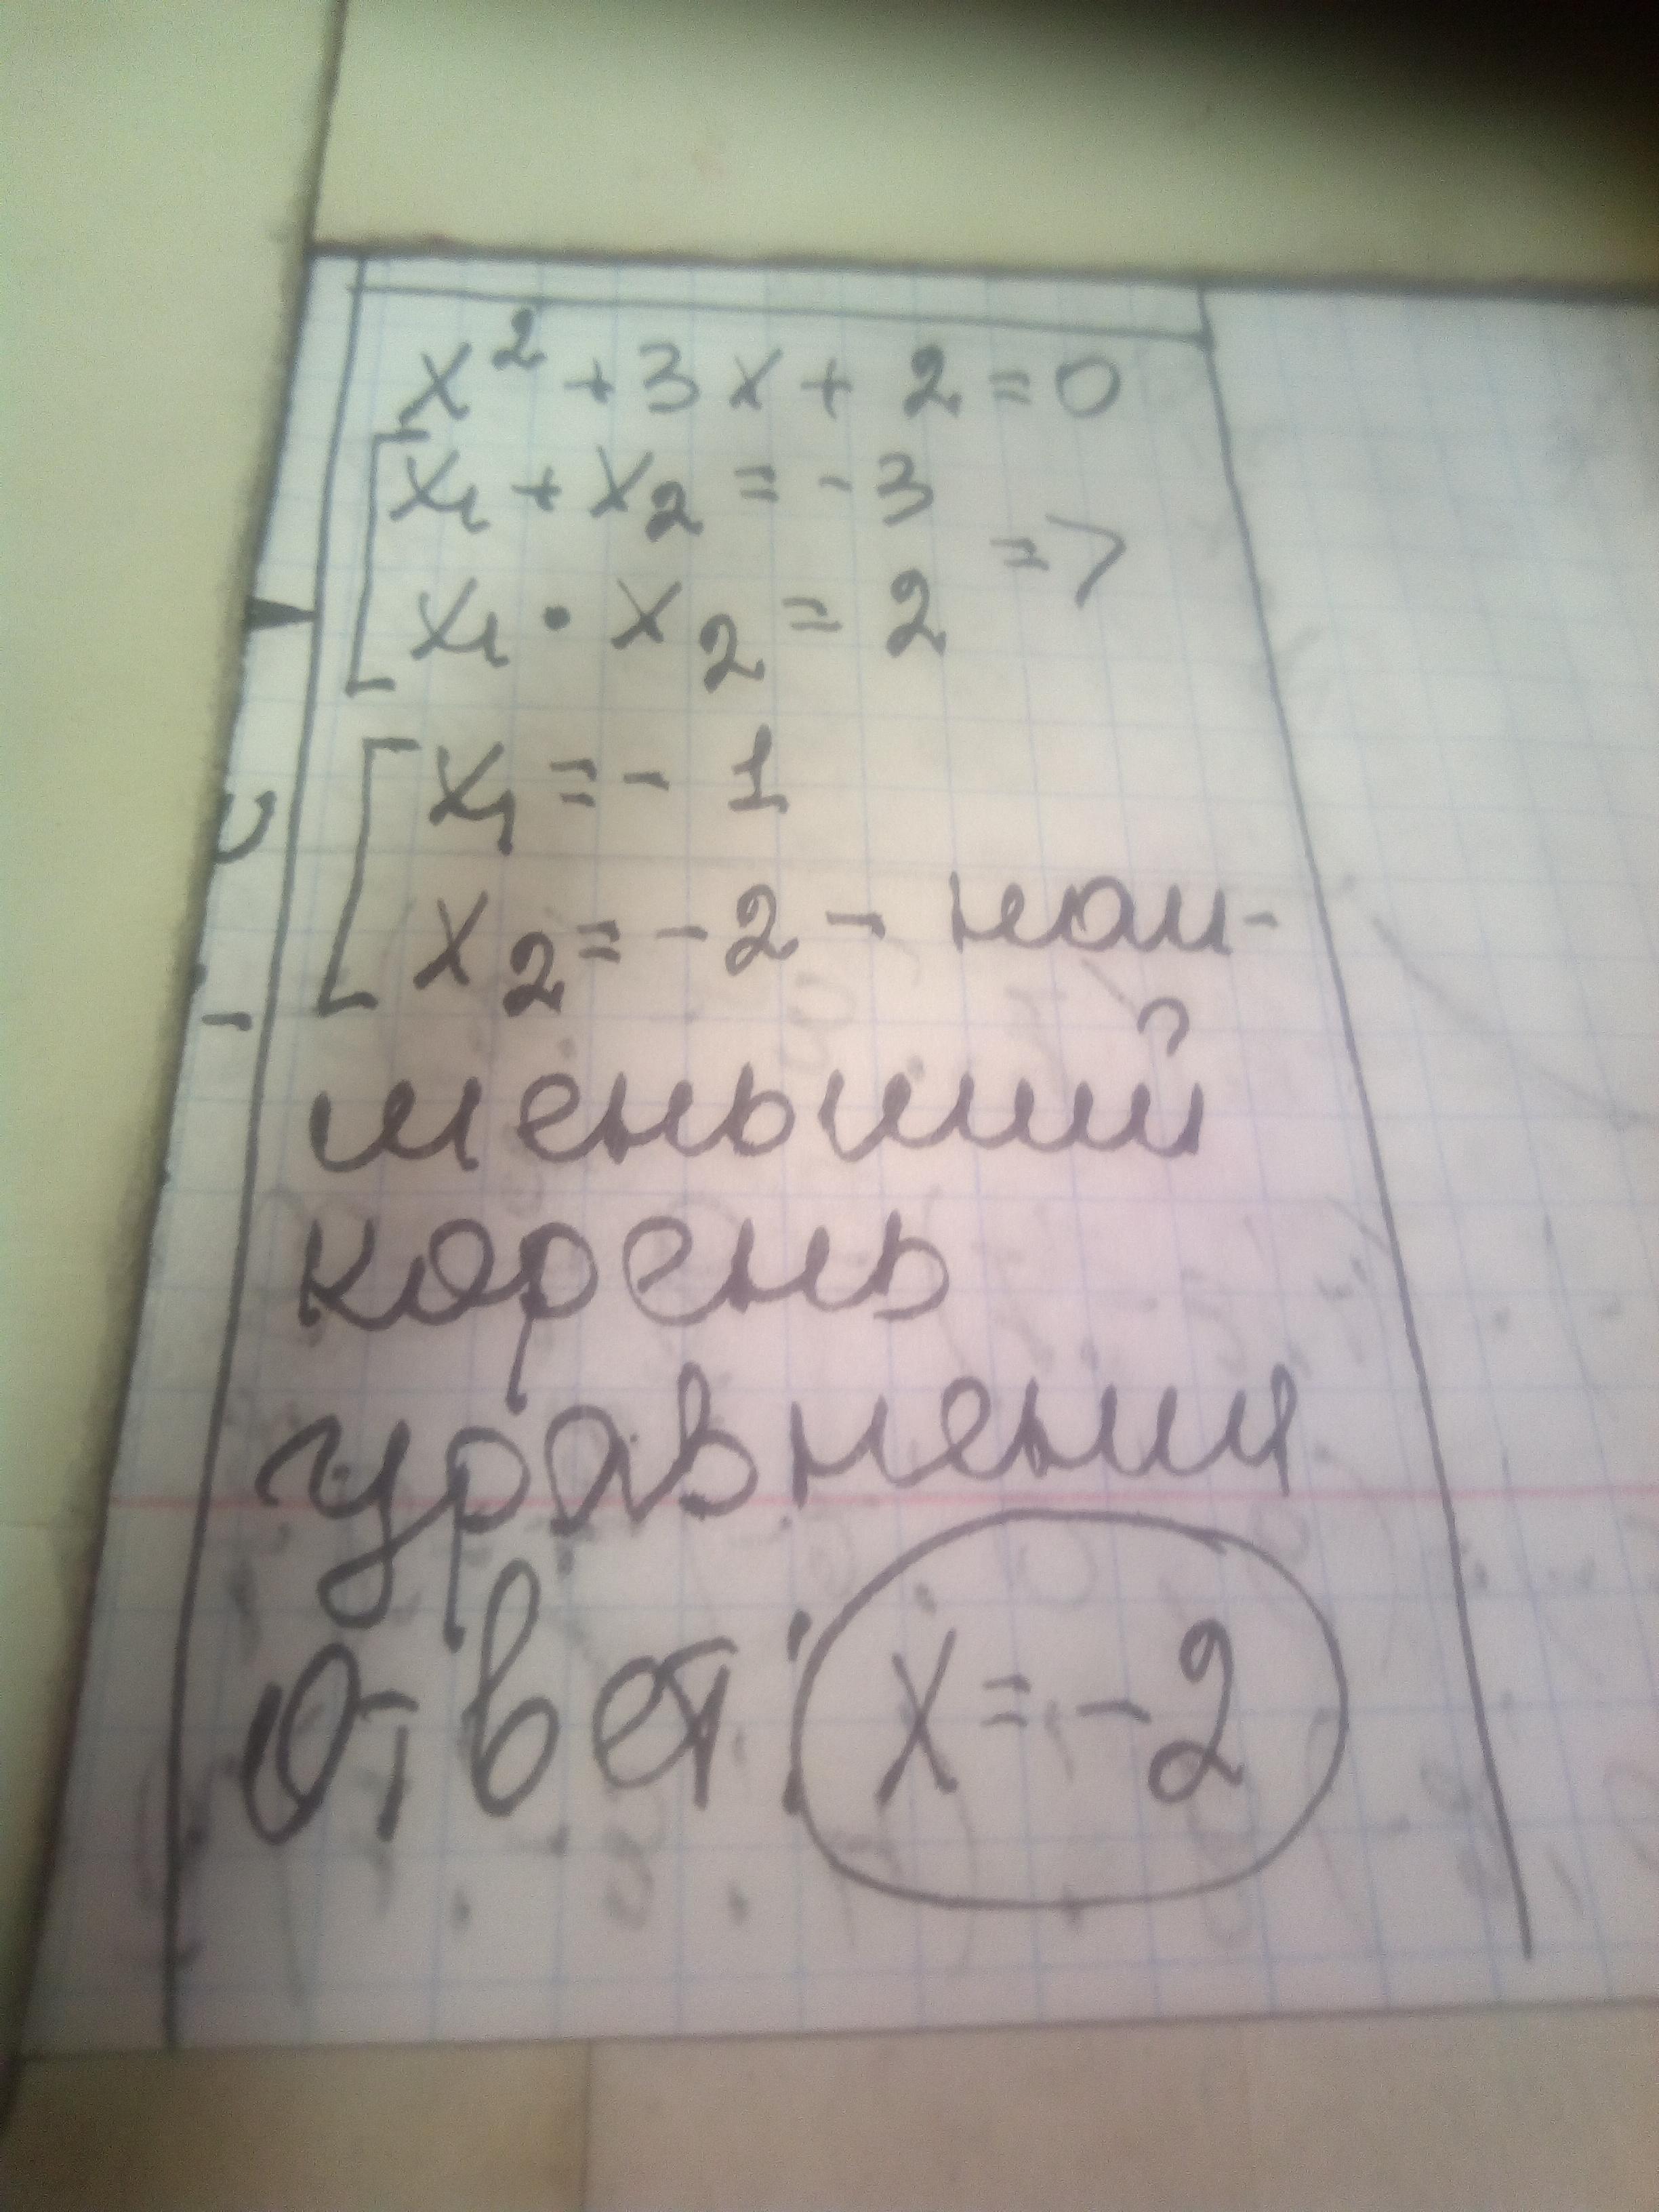 x² + 3x + 2 = 0
x₁ + x₂ = -3
=>
x₁ • x₂ = 2
x₁ = - 1
x₂ = -2 - наи-
меньший
корень
уравнения
Ответ: x = -2